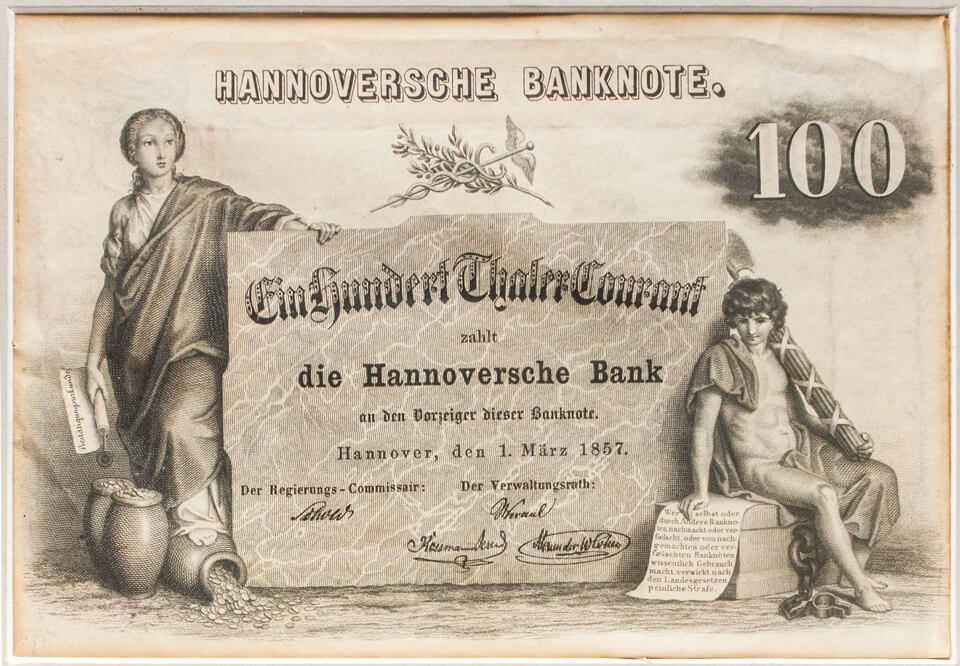 HANNOVERSCHE BANKNOTE.
100
Ein Hundert Thaler Courant
zahlt
die Hannoversche Bank
an den Vorzeiger dieser Banknote.
Hannover, den 1. März 1857.
Der Regierungs-Commissair: Der Verwaltungsrath:
Bestätigungsurkunde
Wer selbst oder
durch Andere Bankno-
ten nachmacht oder ver-
fælscht, oder von nach-
gemachten oder ver-
fælschten Banknoten
wissentlich Gebrauch
macht, verwirkt nach
den Landesgesetzen
peinliche Strafe.